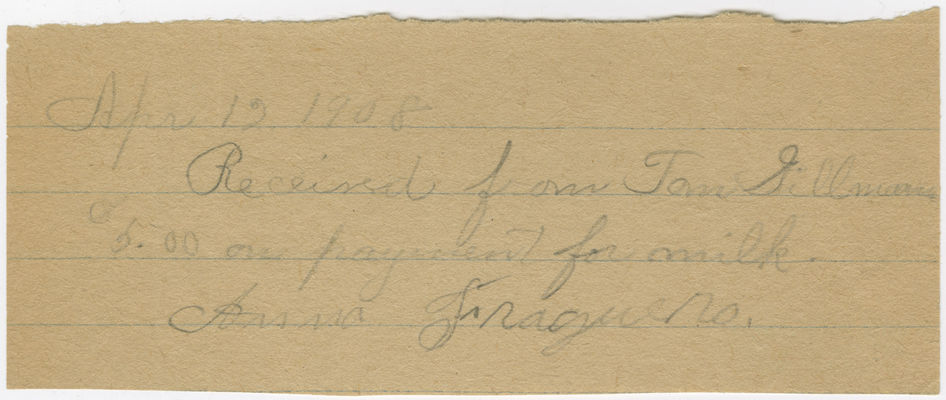 Apr 13 1908
Received from Tom Sillman
5.00 on payment for milk.
Anna